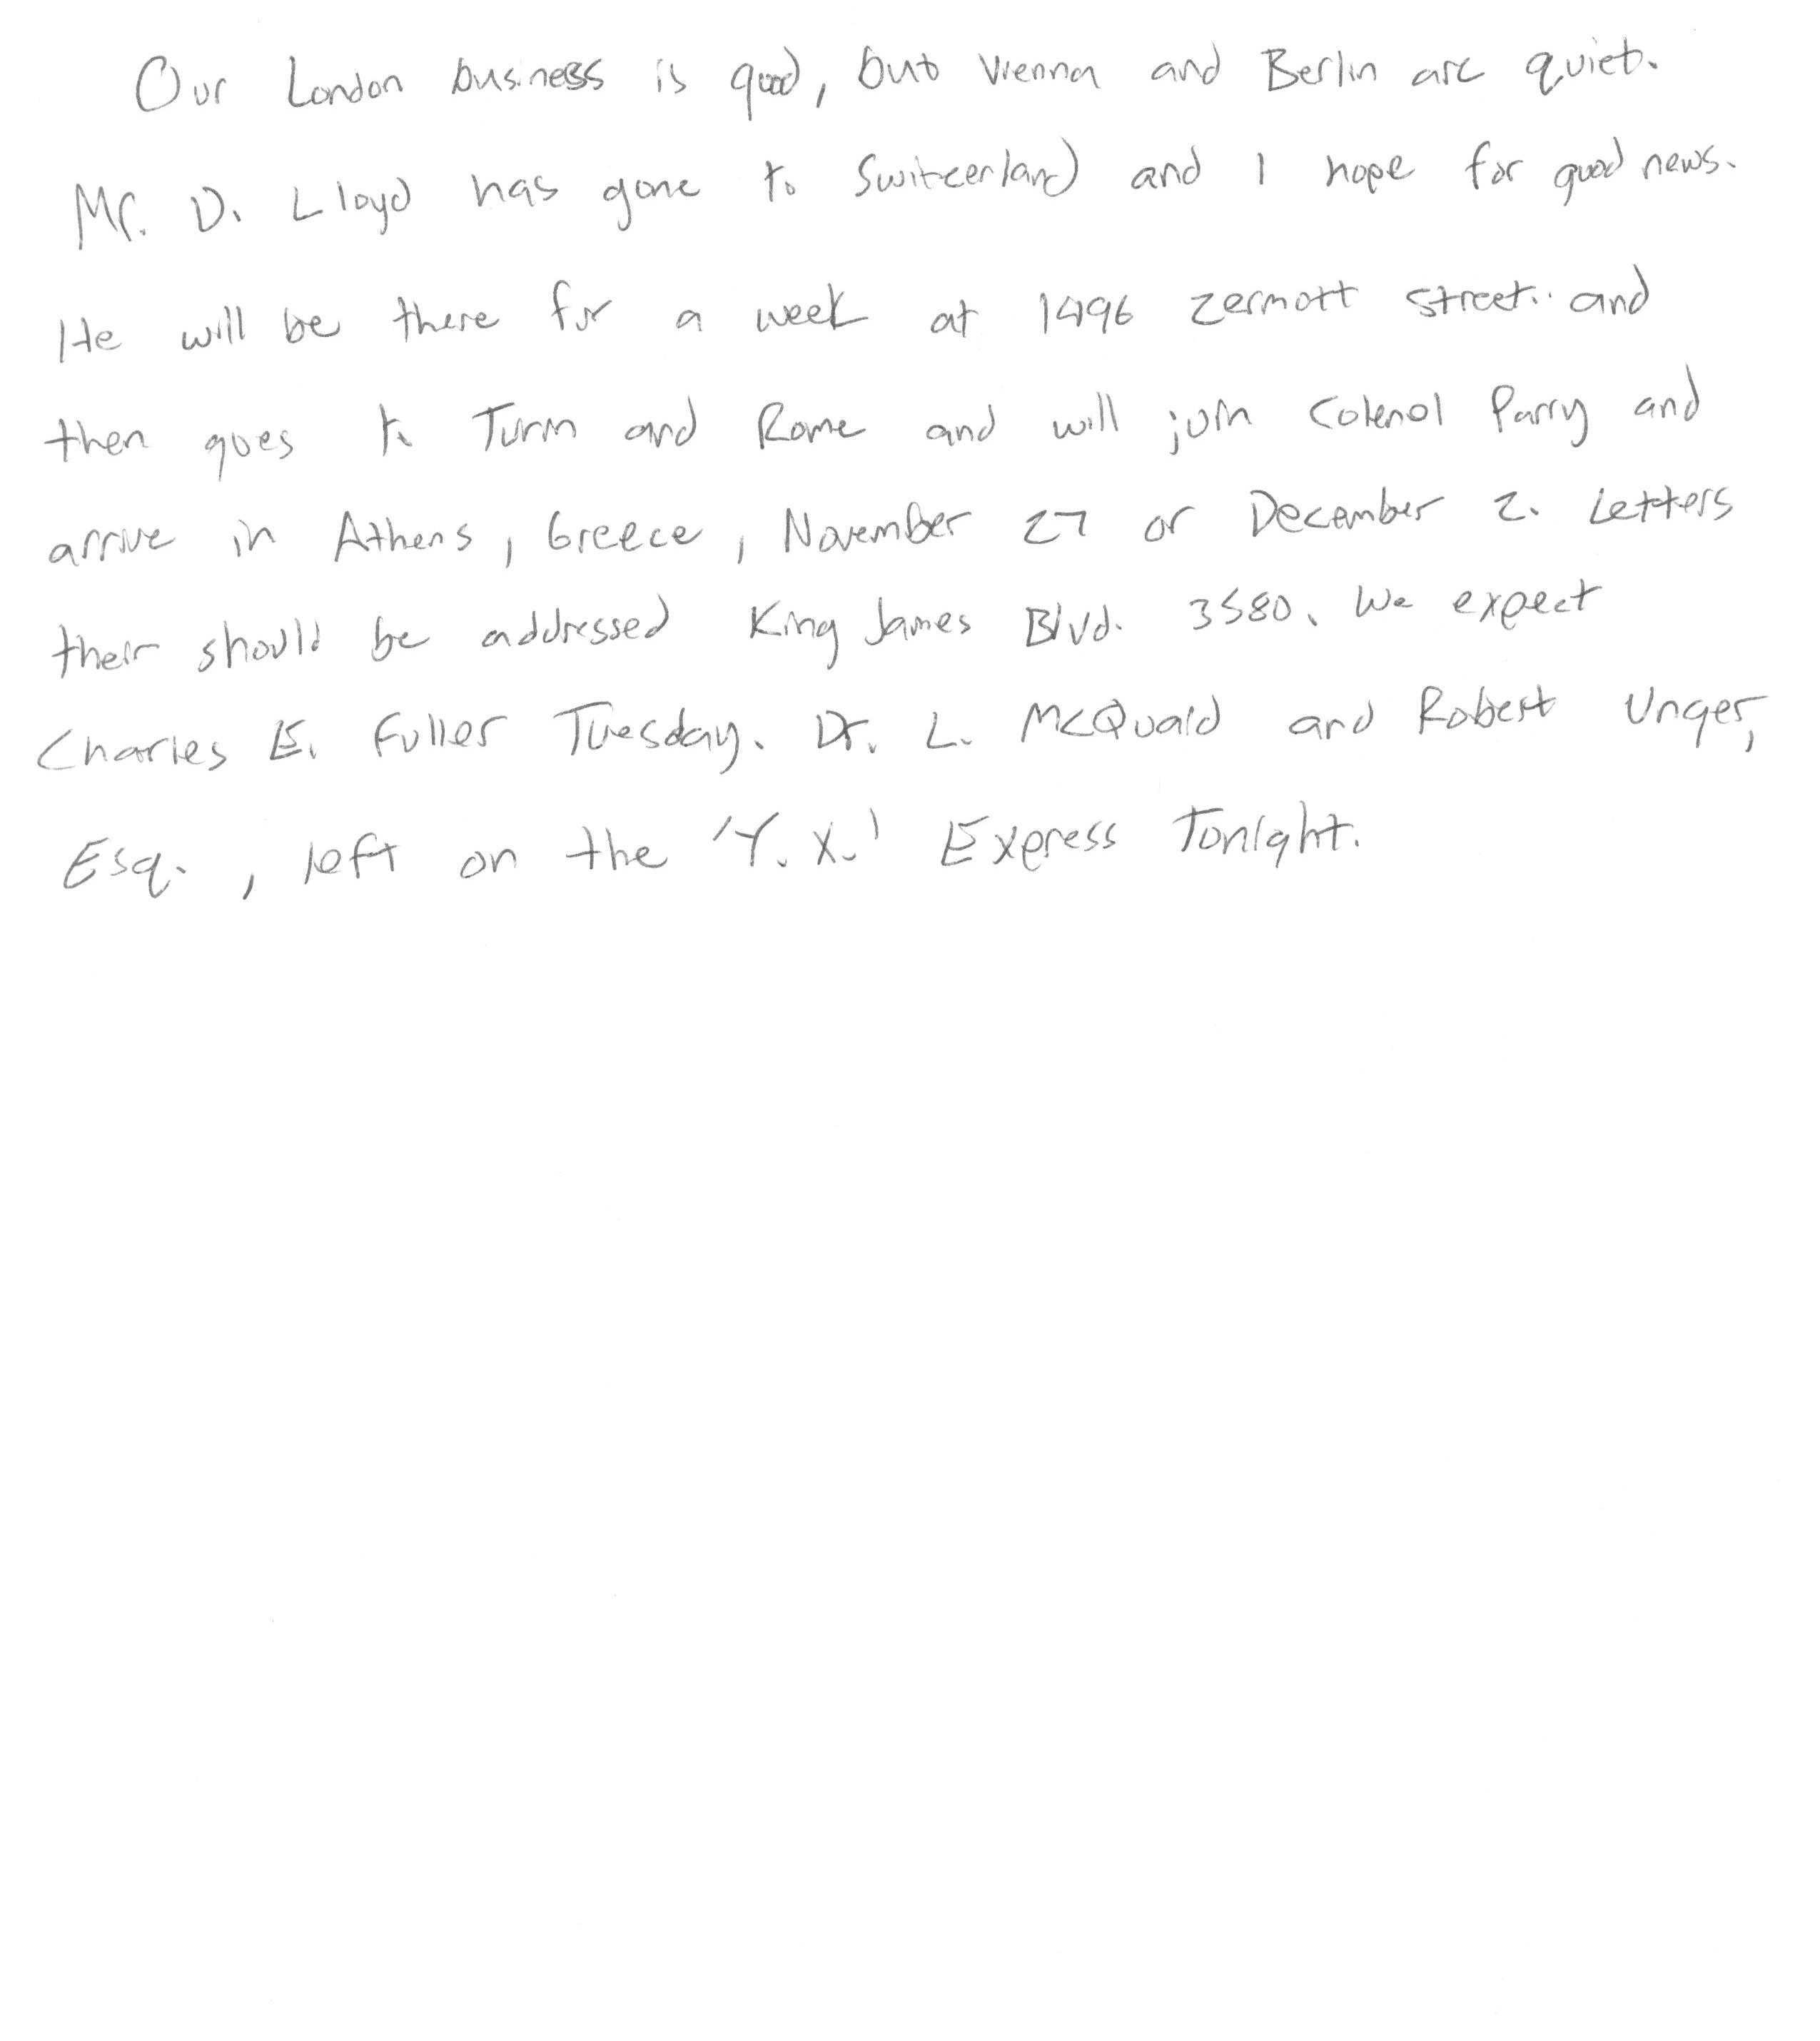 Our London business is good, but Vienna and Berlin are quiet.
Mr. D. Lloyd has gone to Switzerland and I hope for good news.
He will be there for a week at 1496 Zermott Street.. and
then goes to Turin and Rome and will join Colenol Parry and
arrive in Athens, Greece, November 27 or December 2. Letters
their should be addressed King James Blvd. 3580. We expect
Charles E. Fuller Tuesday. Dr. L. McQuaid and Robert Unger,
Esq. , left on the 'Y. X.' Express Tonight.